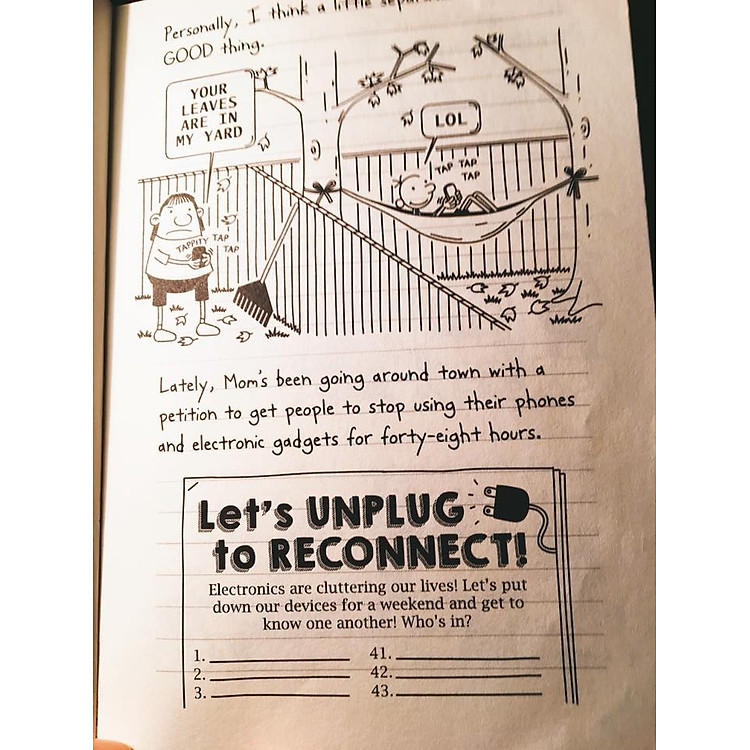 Personally, I think a little
GOOD thing.
YOUR
LEAVES
ARE IN
MY YARD
LOL
TAP TAP
TAP
TAPPITY TAP
TAP
Lately, Mom's been going around town with a
petition to get people to stop using their phones
and electronic gadgets for forty-eight hours.
Let's UNPLUG
to RECONNECT!
Electronics are cluttering our lives! Let's put
down our devices for a weekend and get to
know one another! Who's in?
1. 41.
2. 42.
3. 43.